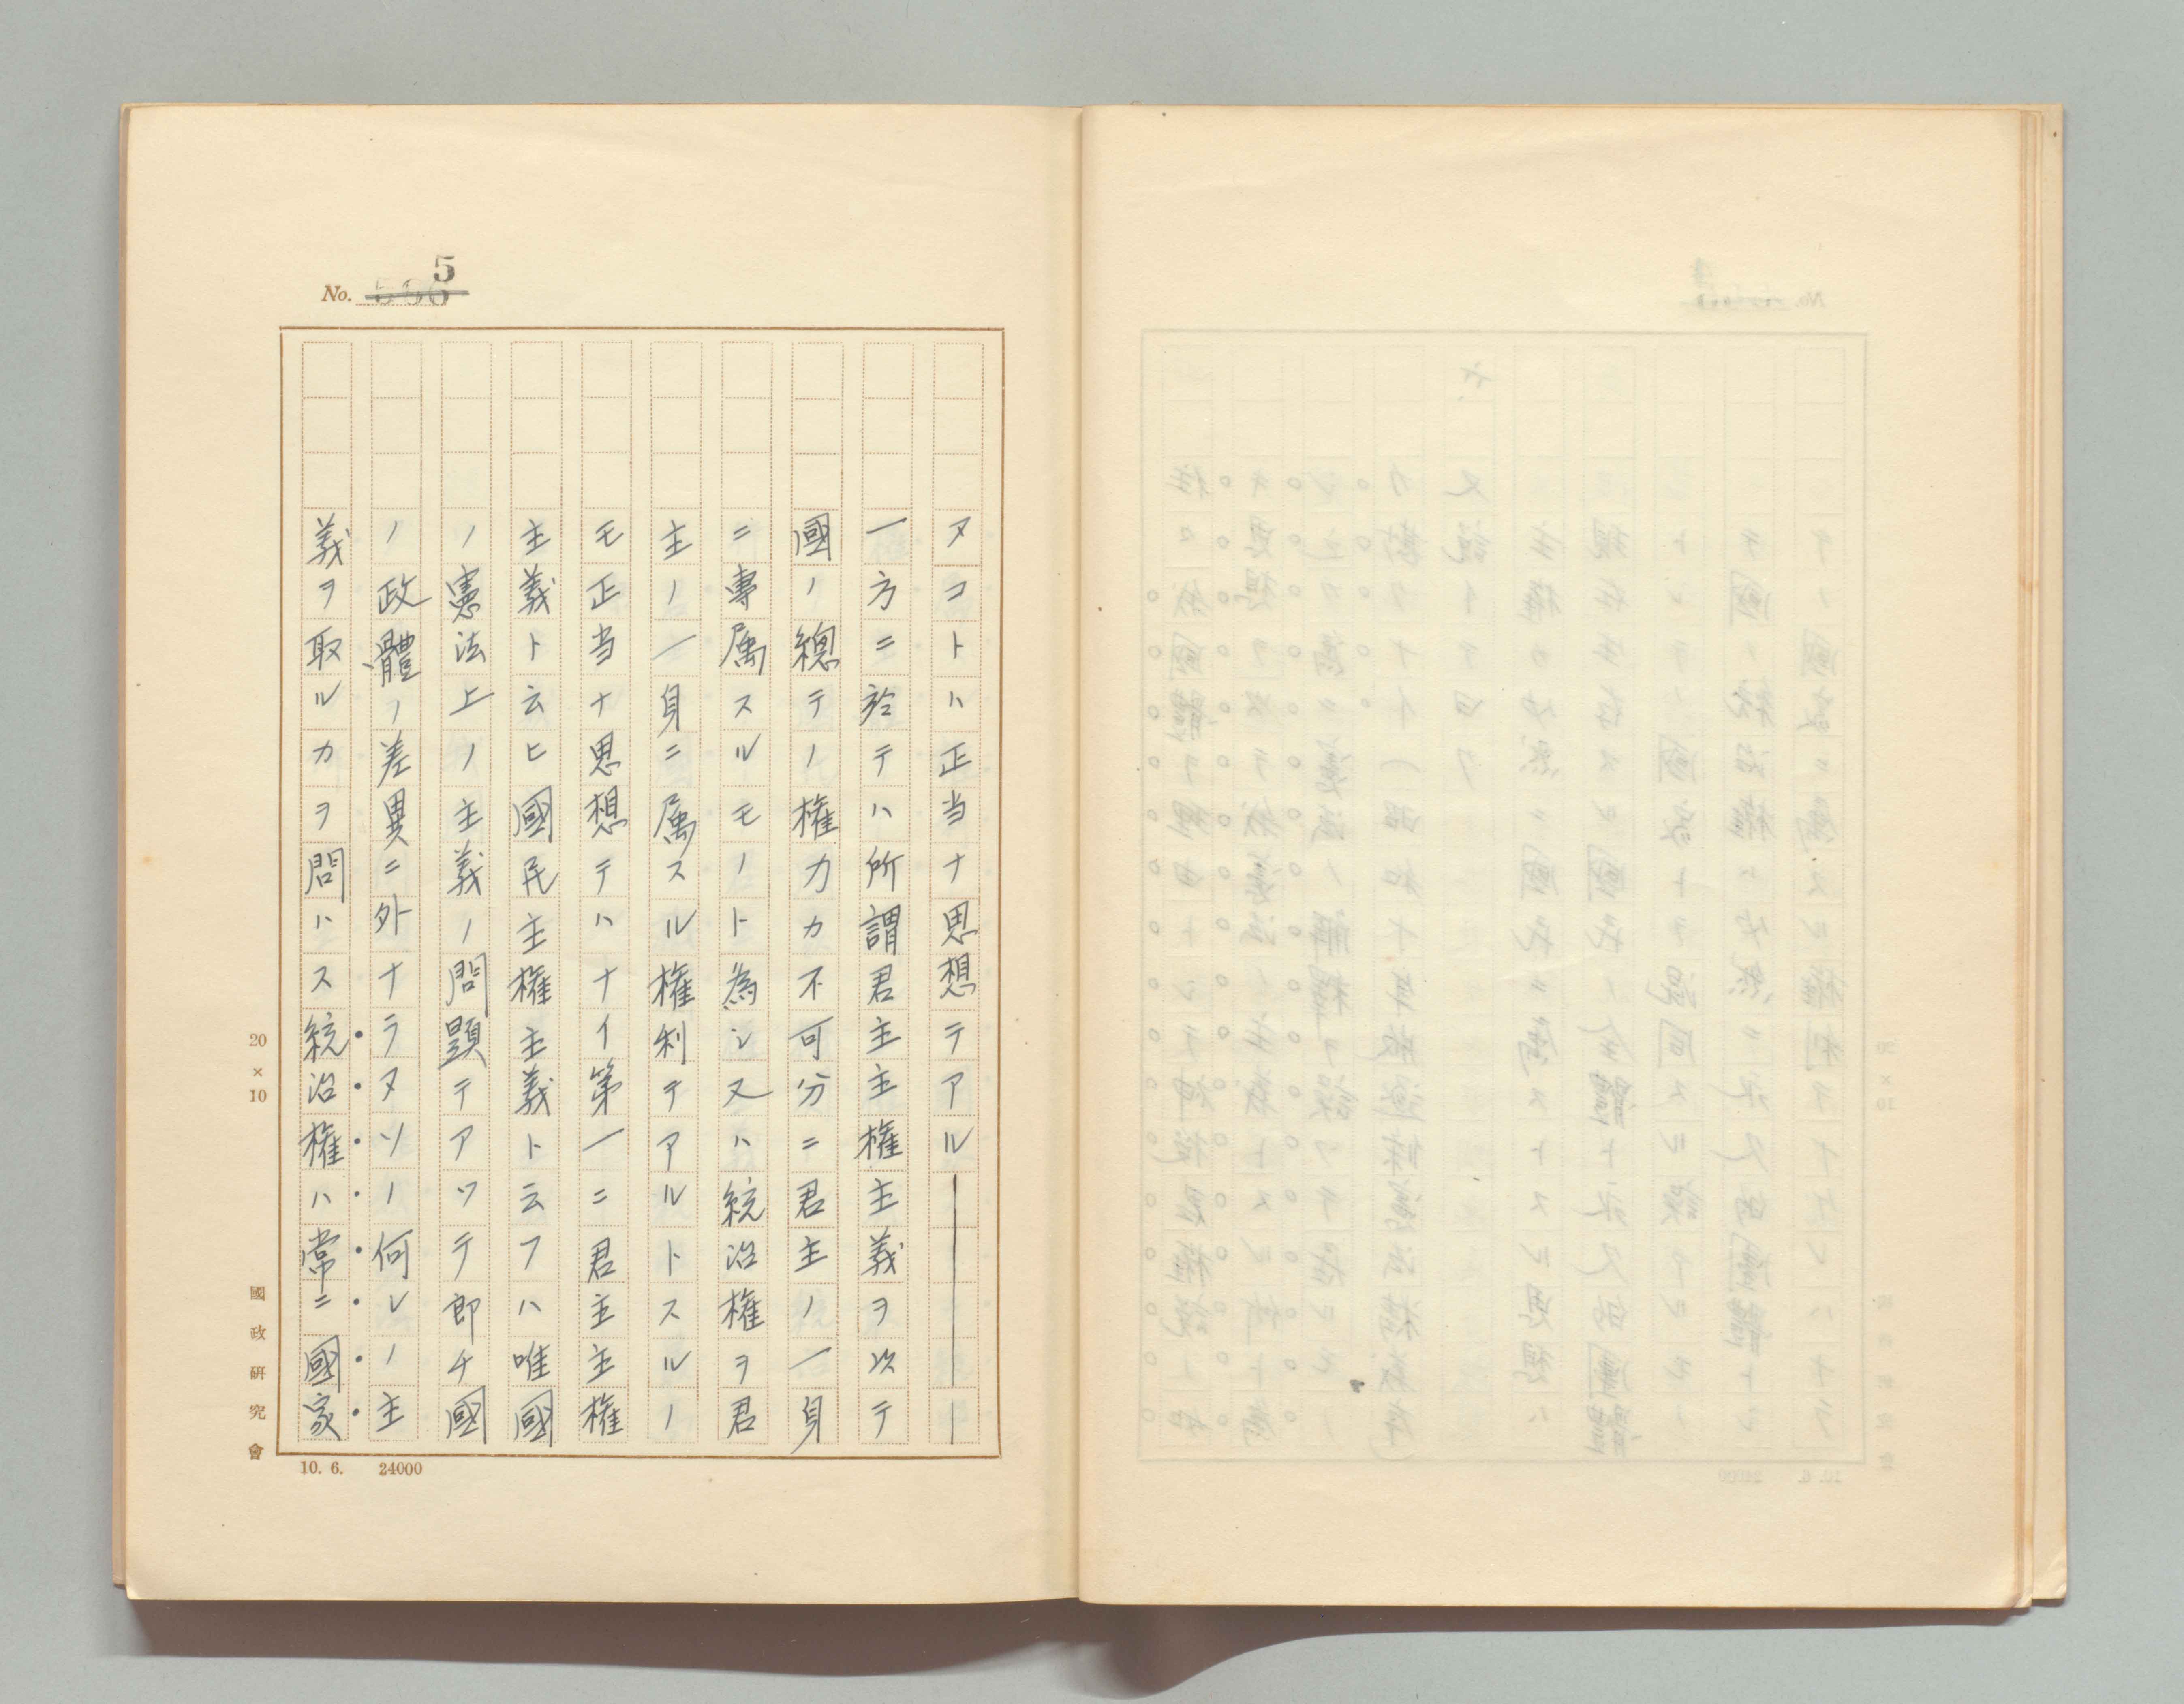 No. 5
ヌコトハ正当ナ思想テアル――
一方ニ於テハ所謂君主主権主義ヲ以テ
國ノ總テノ権力カ不可分ニ君主ノ一身
ニ專属スルモノト為シ又ハ統治権ヲ君
主ノ一身ニ属スル権利テアルトスルノ
モ正当ナ思想テハナイ第一ニ君主主権
主義ト云ヒ國民主権主義ト云フハ唯國
ノ憲法上ノ主義ノ問題テアツテ即チ國
ノ政體ノ差異ニ外ナラヌソノ何レノ主
義ヲ取ルカヲ問ハス統治権ハ常ニ國家
20×10
國政研究會
10. 6. 24000